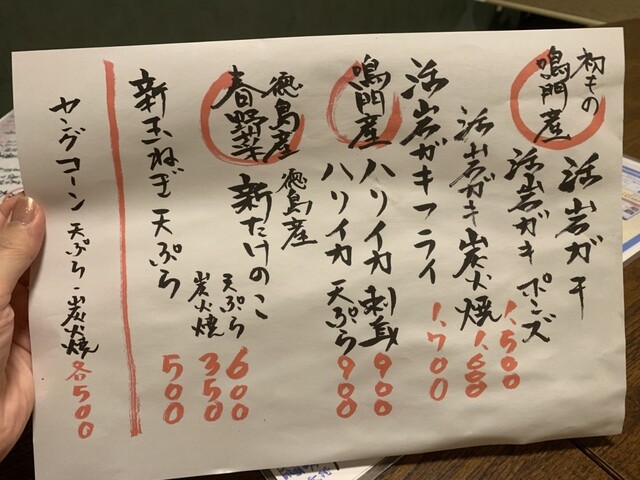 初もの
鳴門産
活岩ガキ
活岩ガキ ポンズ 1,500
活岩ガキ炭火焼 1,600
活岩ガキフライ 1,700
鳴門産
ハリイカ 刺身 900
ハリイカ 天ぷら 900
徳島産
春野菜
徳島産
新たけのこ
天ぷら 600
炭火焼 350
新玉ねぎ 天ぷら 500
ヤングコーン 天ぷら・炭火焼 各500